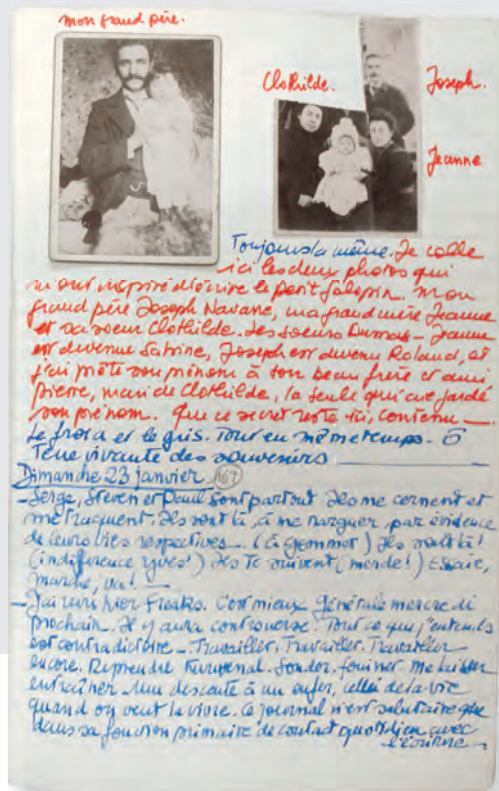 mon grand père.
Clothilde.
Joseph.
Jeanne
Toujours la même. Je colle
ici les deux photos qui
m'ont inspiré d'écrire le petit galopin. Mon
grand père Joseph Navarre, ma grand mère Jeanne
et sa soeur Clothilde. Les soeurs Dumas — Jeanne
est devenue Sabine, Joseph est devenu Roland, et
j'ai prêté son prénom à son beau frère et ami
pierre, mari de Clothilde, la seule qui ait gardé
son prénom. Que ce secret reste ici, contenu —
Le froid et le gris. Tout en même temps. Ô
Terre vivante des souvenirs
Dimanche 23 janvier. 167
— Serge, Steven et Paul sont partout. Ils me cernent et
me traquent. Ils sont là, à me narguer, par évidence
de leurs vies respectives — (à gommer) Ils sont là!
(indifférence Yves!) Ils te suivent (merde!) Essaie,
marche, va! —
— J'ai revu hier Freaks. C'est mieux. Générale mercredi
prochain. Il y aura controverse. Tout ce que j'entends
est contradictoire — Travailler. Travailler. Travailler
encore. Reprendre Kurwenal. Sonder, fouiner. Me laisser
entraîner. Une descente à un enfer, celle de la vie
quand on veut la vivre. Ce journal n'est salutaire que
dans sa fonction primaire de contact quotidien avec
l'écriture —